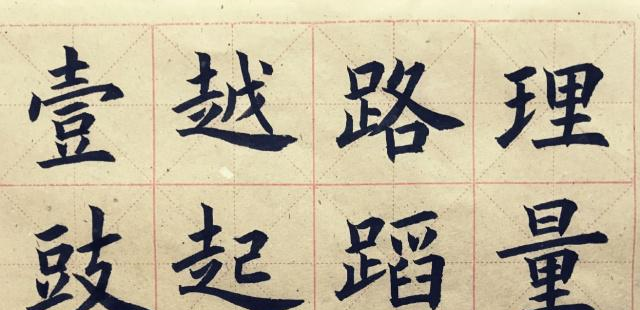 理量
路蹈
越起
壹豉